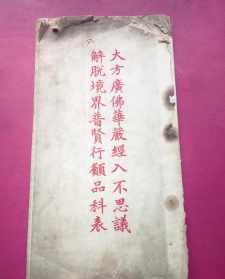 大方廣佛華嚴經入不思議
解脫境界普賢行願品科表